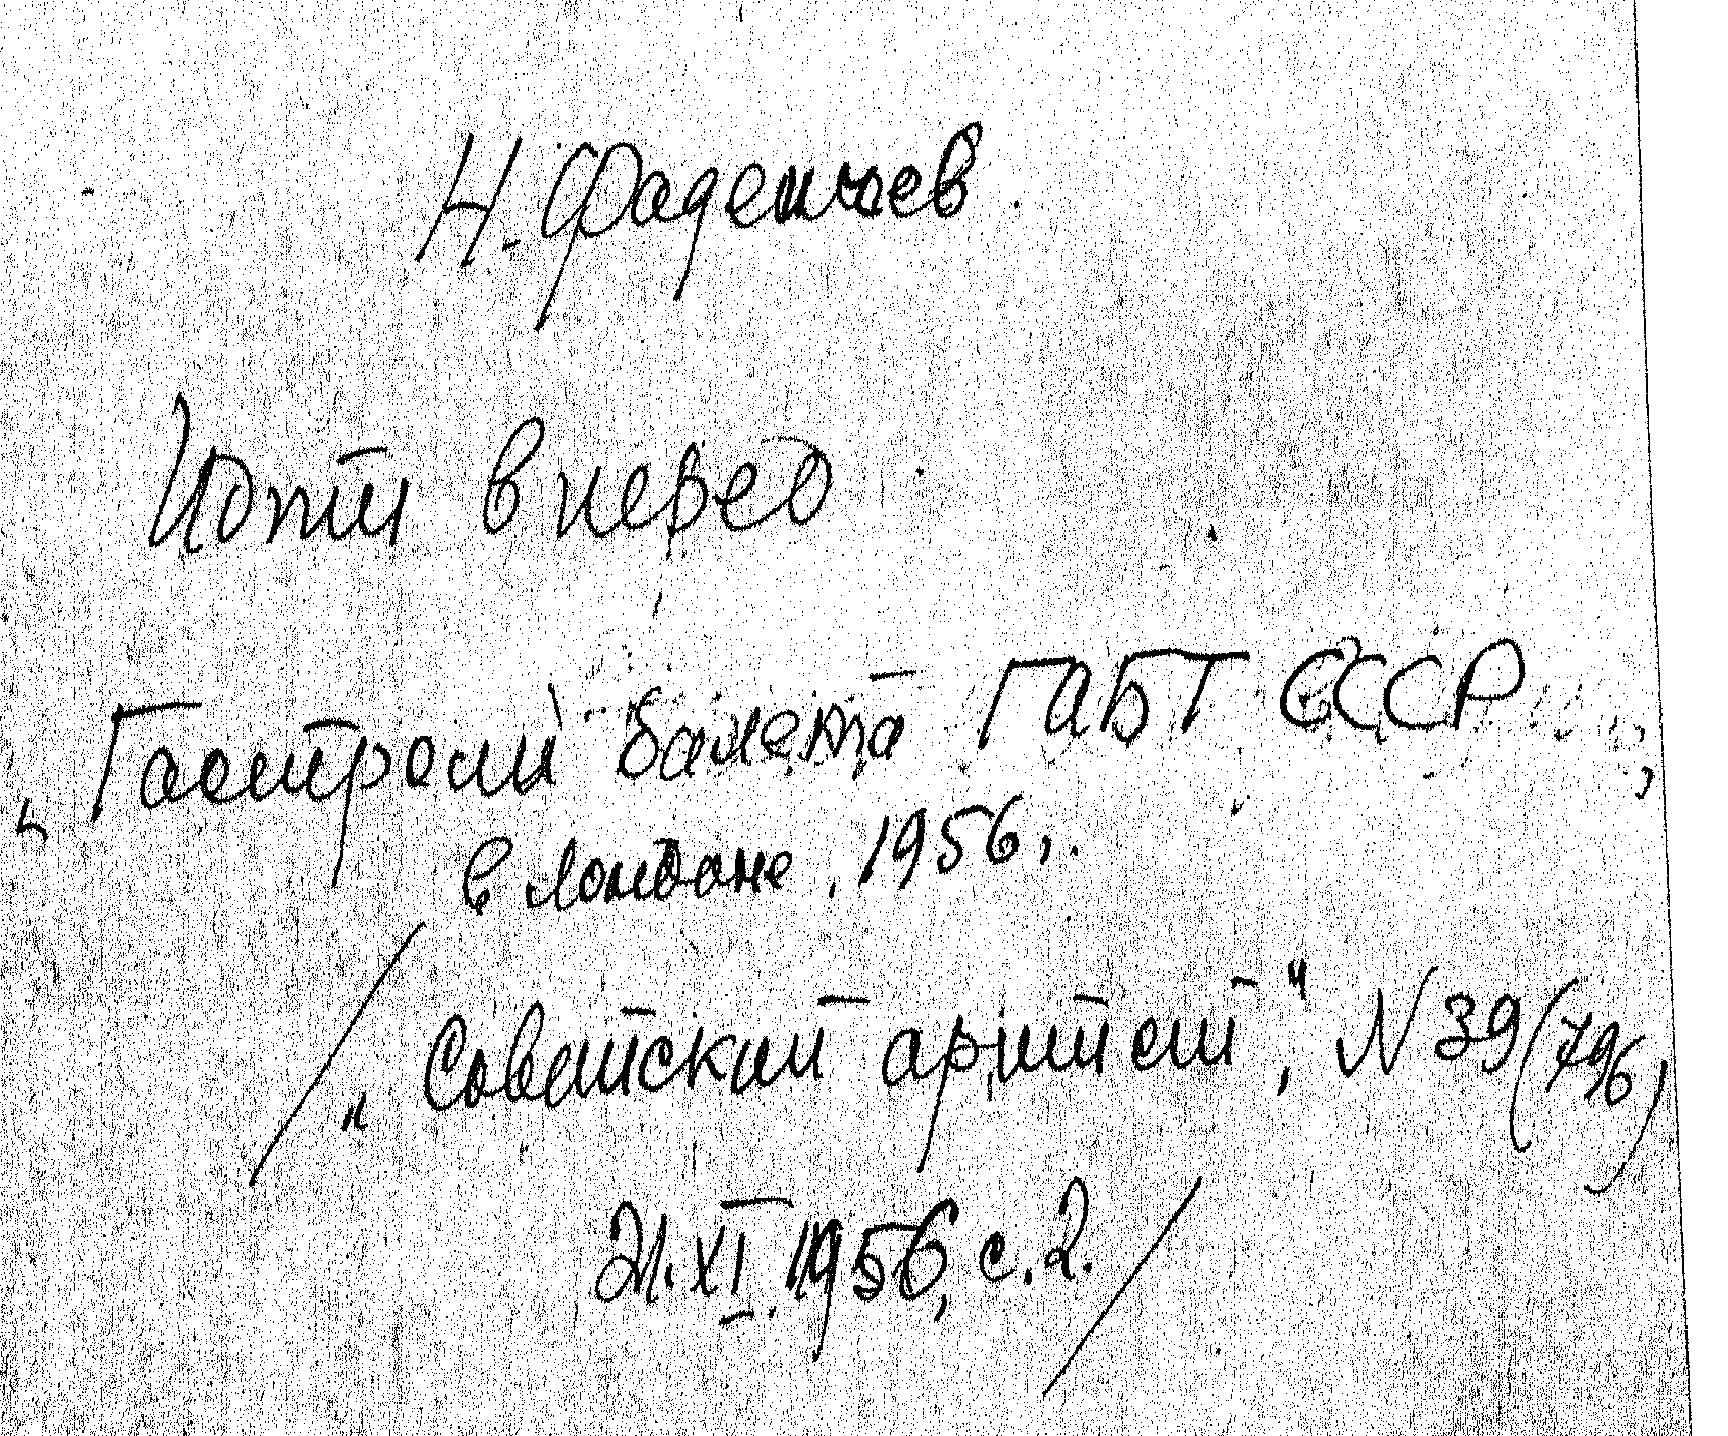 Н. Фадеичев.
Идти вперед
„Гастроли балета ГАБТ СССР,
в Лондоне, 1956,.
/ „Советский артист“, N 39 (796)
21.XI.1956, с. 2. /